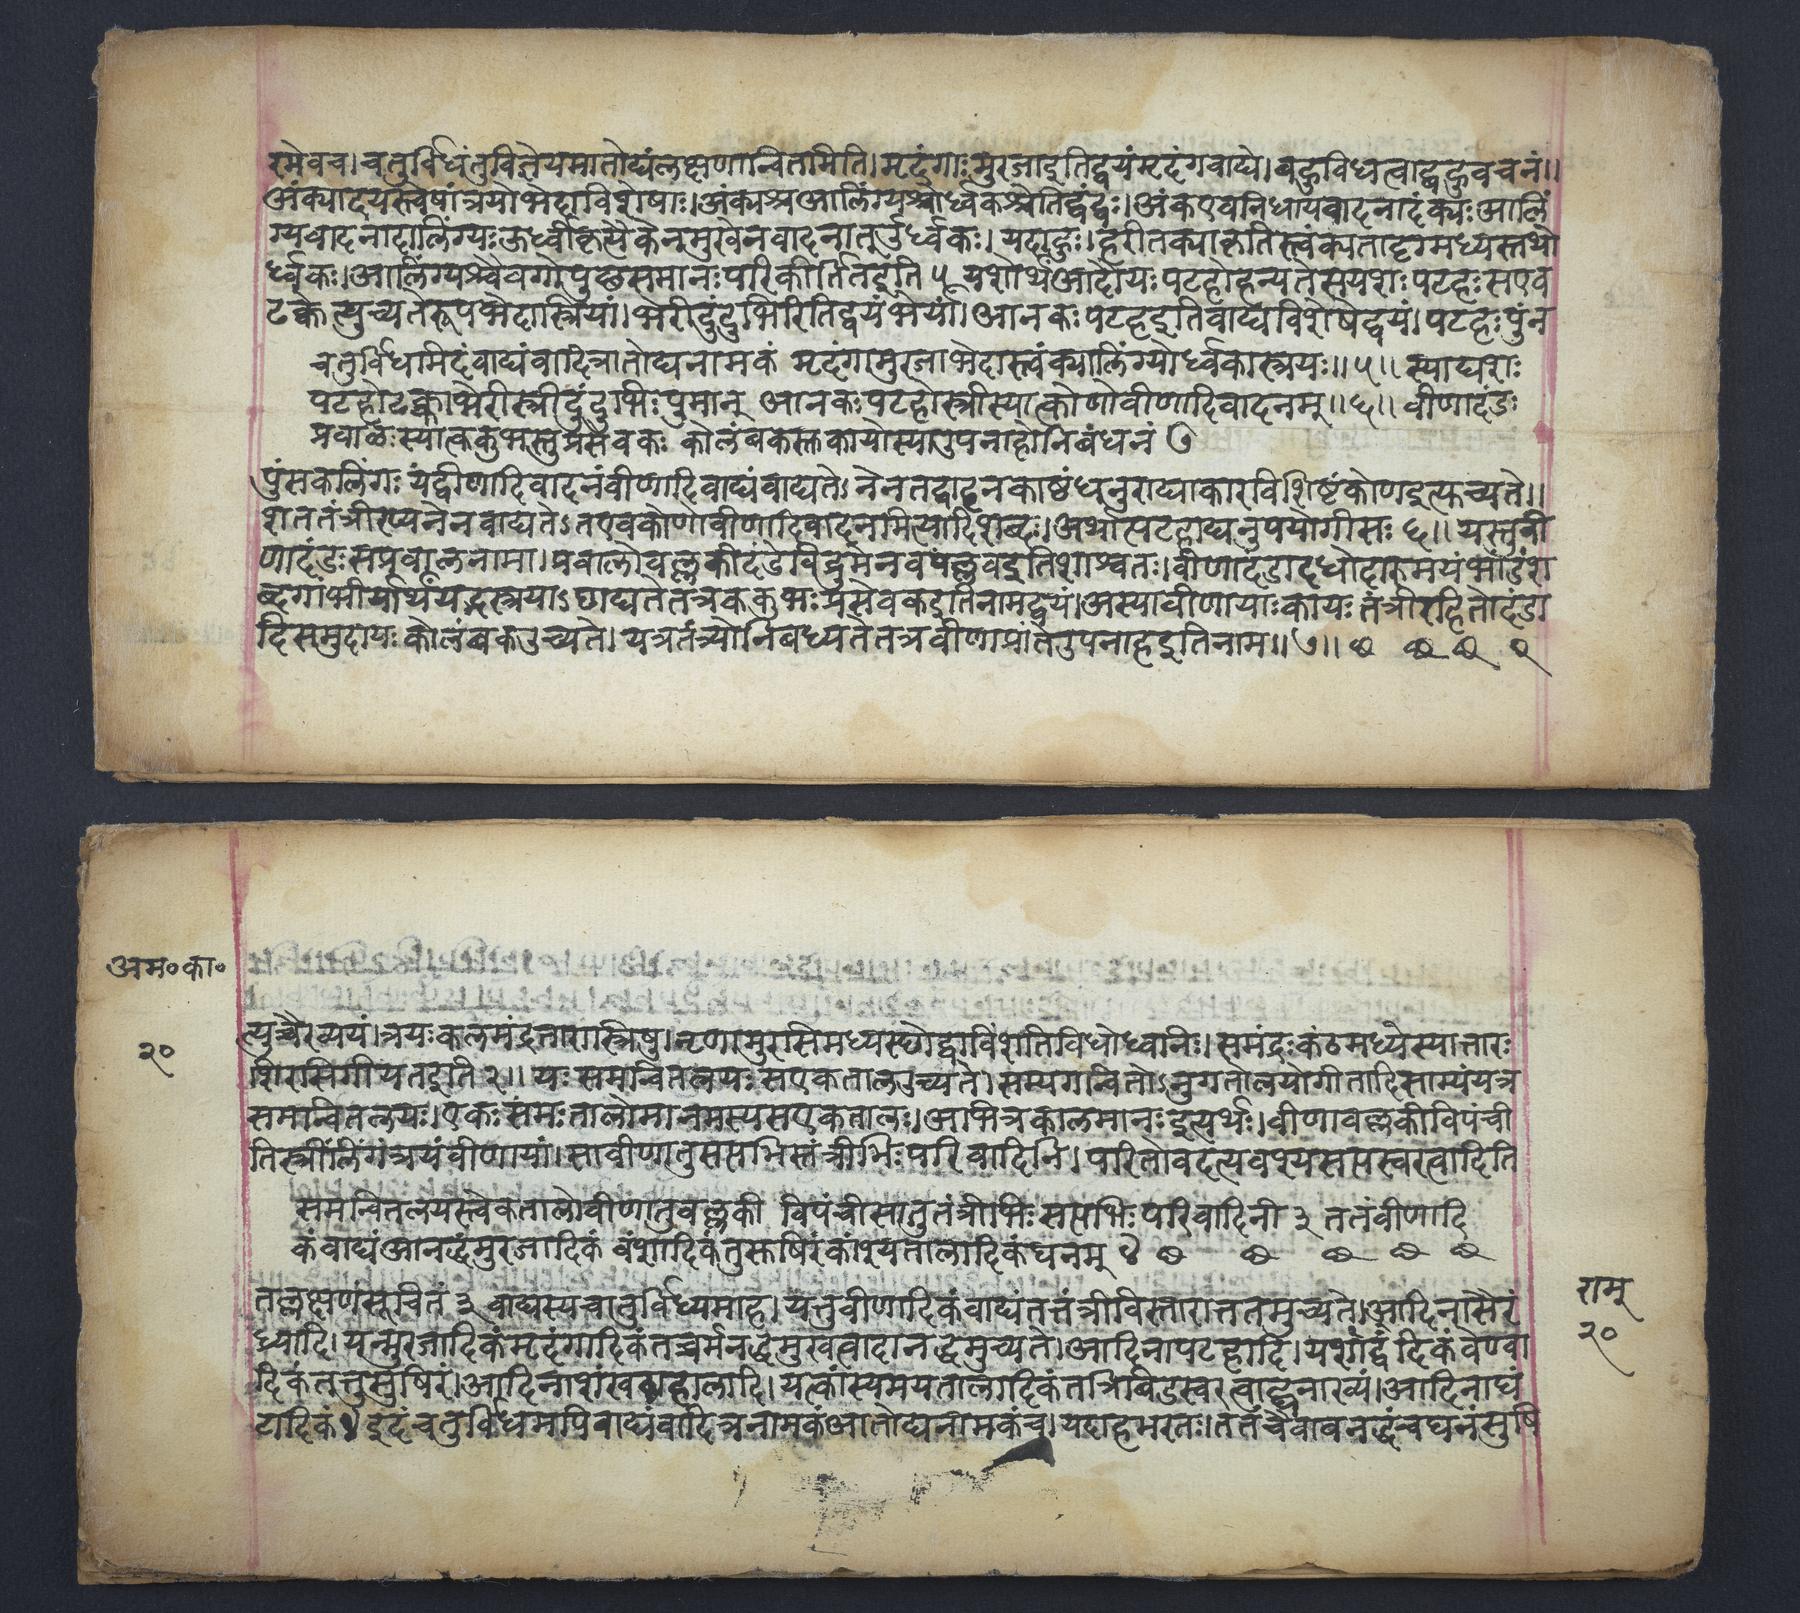 रमेवच।चतुर्विधंतुविज्ञेयमातोद्यंलक्षणान्वितमिति।मृदंगाःमुरजाइतिद्वयंमृदंगवाद्ये।बहुविधत्वाद्बहुवचनं॥
अंक्यादयस्त्वेषांत्रयोभेदाविशेषाः।अंक्यश्चआलिंग्यश्चोर्ध्वकश्चेतिद्वंद्वः।अंकएवनिधायवादनादंक्यःआलिं
ग्यवादनादालिंग्यःऊर्ध्वीकृत्यैकेनमुखेनवादनात्ऊर्ध्वकः।यदाहुः।हरीतक्याकृतिस्त्वंक्यतादृग्मध्यस्तथो
र्ध्वकः।आलिंग्यश्चैवगोपुछसमानःपरिकीर्तितइति ५ यशोर्थआदौयःपटहोहन्यतेसयशःपटहःसएव
ढक्केत्युच्यतेरूपभेदास्त्रियां।भेरीदुंदुभिरितिद्वयंभेर्यां।आनकःपटहइतिवाद्यविशेषेद्वयं।पटहःपुंन
चतुर्विधमिदंवाद्यंवादित्रातोद्यनामकं मृदंगामुरजाभेदास्त्वंक्यालिंग्योर्ध्वकास्त्रयः॥५॥ स्याद्यशः
पटहोढक्काभेरीस्त्रीदुंदुभिःपुमान् आनकःपटहोस्त्रीस्यात्कोणोवीणादिवादनम्॥६॥ वीणादंडः
प्रवाळःस्यात्ककुभस्तुप्रसेवकः कोलंबकस्तुकायोस्याउपनाहोनिबंधनं ७
पुंसकलिंगः यद्वीणादिवादनंवीणादिवाद्यंवाद्यतेऽनेनतद्वादनकाष्ठंधनुराद्याकारविशिष्टंकोणइत्युच्यते॥
शततंत्रीरप्यनेनवाद्यतेऽतएवकोणोवीणादिवादनमित्यादिशब्दः।अथोपटहाद्यनुपयोगीसः ६॥ यस्तुवी
णादंडःसप्रवालनामा।प्रवालोवल्लकीदंडेविद्रुमेनवपल्लवइतिशाश्वतः।वीणादंडादधोदारुमयंभांडंश
ब्दगांभीर्यार्थंयद्वस्त्रयाऽछाद्यतेतत्रककुभःप्रसेवकइतिनामद्वयं।अस्यावीणायाःकायः तंत्रीरहितोदंडा
दिसमुदायः कोलंबकउच्यते। यत्रतंत्र्योनिबध्यंतेतत्रवीणाप्रांतेउपनाहइतिनाम॥७॥
अम॰का॰
२०
त्युच्चैरव्ययं।त्रयःकलमंद्रतारास्त्रिषु।नृणामुरसिमध्यस्थोद्वाविंशतिविधोध्वनिः।समंद्रःकंठमध्येस्यात्तारः
शिरसिगीयतइति २॥ यःसमन्वितलयःसएकतालउच्यते।सम्यगन्वितोऽनुगतोलयोगीतादिसाम्यंयत्र
समन्वितलयः।एकःसमःतालोमानमस्यसएकतालः।अभिन्नकालमानःइत्यर्थः।वीणावल्लकीविपंची
तिस्त्रीलिंगंत्रयंवीणायां।सावीणातुसप्तभिस्तंत्रीभिःपरिवादिनि।परितोवदत्यवश्यंसप्तस्वरत्वादिति
समन्वितलयस्त्वेकतालोवीणातुवल्लकी विपंचीसातुतंत्रीभिःसप्तभिःपरिवादिनी ३ ततंवीणादि
कंवाद्यंआनद्धंमुरजादिकं वंशादिकंतुसुषिरंकांश्यतालादिकंघनम् ४
तल्लक्षणंसूचितं ३ वाद्यस्यचातुर्विध्यमाह।यत्तुवीणादिकंवाद्यंतत्तंत्रीविस्तारात्ततमुच्यते।आदिनासैरं
ध्र्यादि।यन्मुरजादिकंमृदंगादिकंतच्चर्मनद्धमुखत्वादानद्धमुच्यते।आदिनापटहादि।यशंद्वं दिकंवेण्वा
दिकंतत्तुसुषिरं।आदिनाशंखकाहालादि।यत्कांस्यमयतालादिकंतन्निबिडस्वरत्वाद्घनाख्यं।आदिनाघं
टादिकं४इदंचतुर्विधमपिवाद्यंवादित्रनामकंआतोद्यनामकंच।यदाहभरतः।ततंचैवावनद्धंचघनंसुषि
रामृ
२०